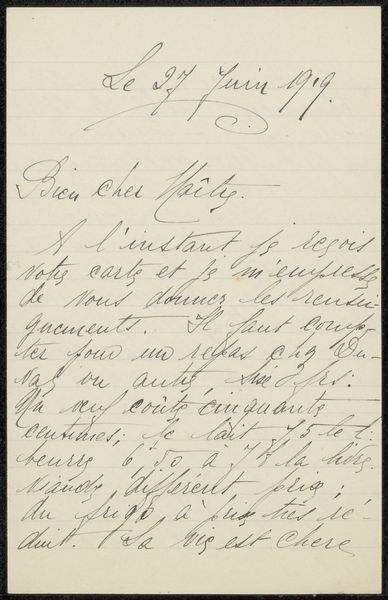 Le 27 Juin 1919.
Bien cher Maître.
A l'instant je reçois
votre carte et je m'empresse
de vous donner les rensei
gnements. Il faut comp-
ter pour un repas chez Du-
val ou autre, six frs.
Un œuf coûte cinquante
centimes; le lait 75 le l.
beurre 6,50 à 7 la livre
viande différent prix;
du frigo à prix très ré-
duit. La vie est chère